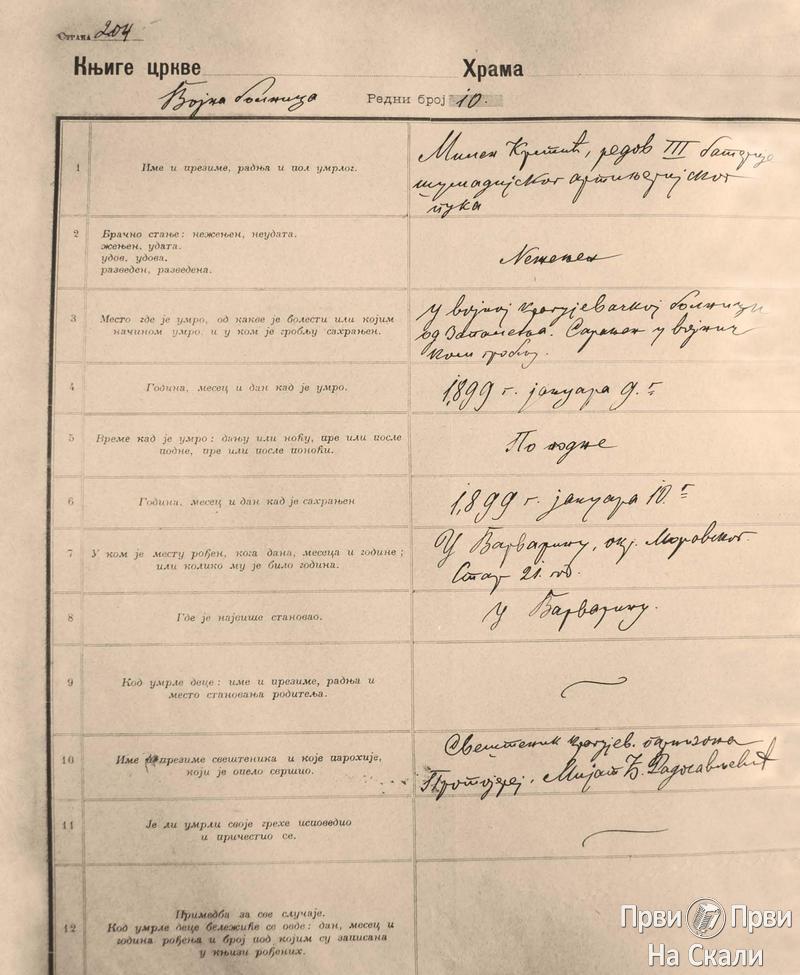 Страна 204
Књиге цркве Храма
Војна болница Редни број 10.
1 Име и презиме, радња и пол умрлог.
Милен Крстић, редов III батерије
шумадијског артиљеријског
пука
2 Брачно стање: нежењен, неудата.
жењен, удата.
удов, удова.
разведен, разведена.
Нежењен
3 Место где је умро, од какве је болести или којим
начином умро, и у ком је гробљу сахрањен.
У војној крагујевачкој болници
од Запалења. Сарањен у војнич
ком гробљу.
4 Година, месец и дан кад је умро.
1899 г. јануара 9.г
5 Време кад је умро: дању или ноћу, пре или после
подне, пре или после поноћи.
По подне
6 Година, месец и дан кад је сахрањен
1899 г. јануара 10.г
7 У ком је месту рођен, кога дана, месеца и године;
или колико му је било година.
У Варварину, окр. Моравског.
Стар 21. год.
8 Где је највише становао.
У Варварину.
9 Код умрле деце: име и презиме, радња и
место становања родитеља.
10 Име и презиме свештеника и које парохије,
који је опело сершио.
Свештеник крагујев. гарнизона
Протојереј, Мијат Ђ. Радосављевић
11 Је ли умрли своје грехе исповедио
и причестио се.
12 Примедба за све случаје.
Код умрле деце бележиће се овде: дан, месец и
година рођења и број под којим су записана
у књизи рођених.
Први Први
На Скали